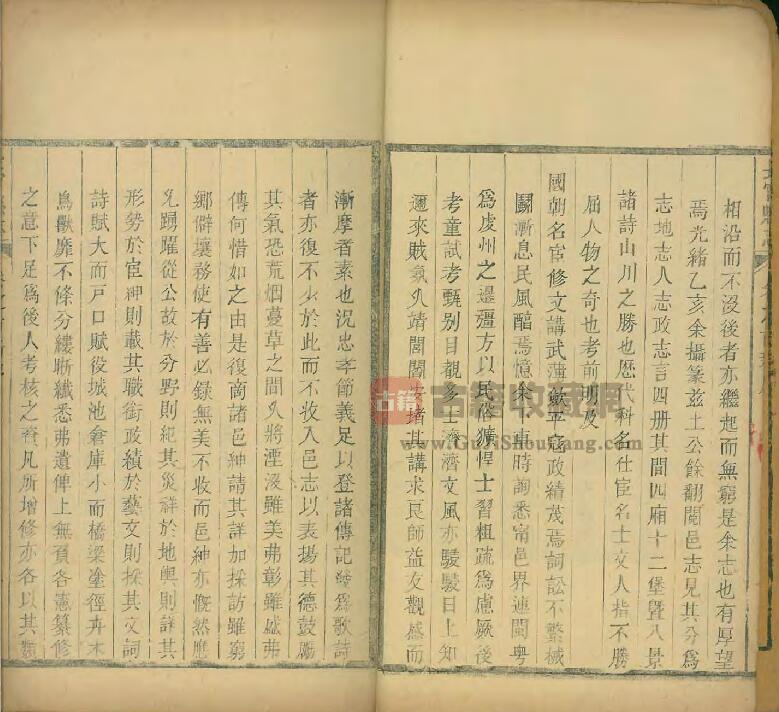 相沿而不沒後者亦繼起而無窮是余志也有厚望
焉光緒乙亥余攝篆兹土公餘翻閱邑志見其分爲
志地志人志政志言四册其間四廂十二堡曁八景
諸詩山川之勝也歴代科名仕宦名士文人指不勝
屈人物之奇也考前明及
國朝名宦修文講武蓮平寇政績茂焉詞訟不繁械
鬬漸息民風醕焉憶余下車時詢悉甯邑界連閩粤
爲虔州之邊疆方以民俗獷悍士習粗疏爲慮厥後
考童試考甄别目覩多士濟濟文風亦駸駸日上知
邇來賊氛久靖閭閻安堵其講求良師益友觀感而
漸摩者素也況忠孝節義足以登諸傳記發爲歌詩
者亦復不少於此而不收入邑志以表揚其德鼓勵
其氣恐荒烟蔓草之間久將湮沒雖美弗彰雖盛弗
傳何惜如之由是復商諸邑紳請其詳加採訪雖窮
鄉僻壤務使有善必録無美不收而邑紳亦慨然應
允踴躍從公故於分野則紀其災祥於地輿則詳其
形勢於宦紳則載其職銜政績於藝文則採其文詞
詩賦大而戸口賦役城池倉庫小而橋梁塗徑卉木
鳥獸靡不條分縷晰纎悉弗遺俾上無負各憲纂修
之意下足爲後人考核之資凡所增修亦各以其類
古籍
古籍收藏網
www.GujiShoucang.com